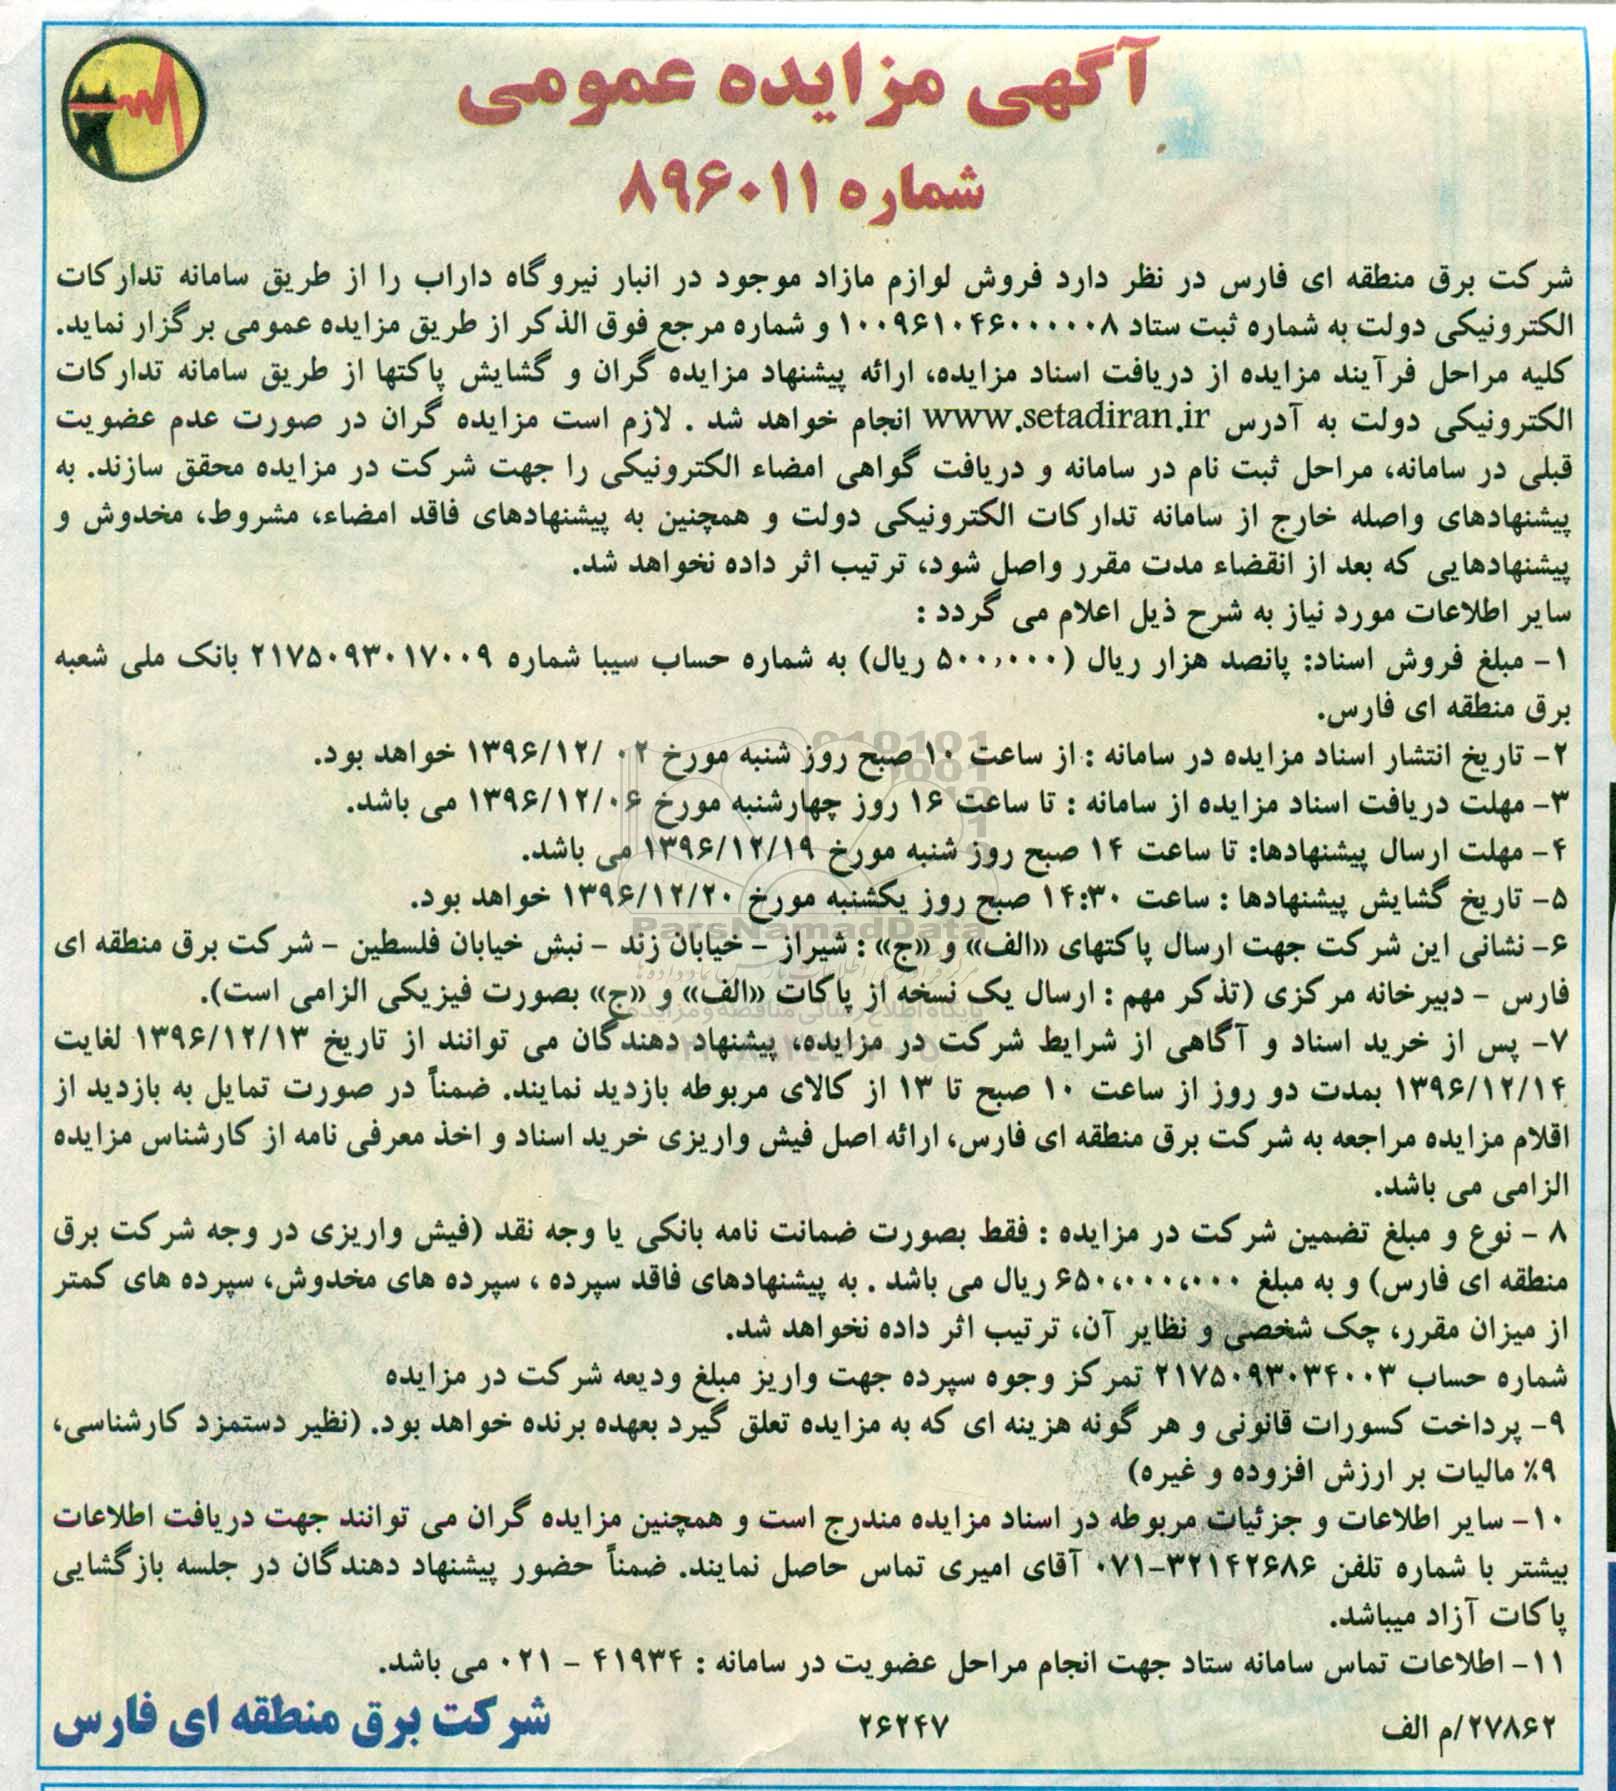 آگهی مزایده عمومی
شماره ۸۹۶۰۱۱
شرکت برق منطقه ای فارس در نظر دارد فروش لوازم مازاد موجود در انبار نیروگاه داراب را از طریق سامانه تدارکات
الکترونیکی دولت به شماره ثبت ستاد ۱۰۰۹۶۱۰۴۶۰۰۰۰۰۸ و شماره مرجع فوق الذکر از طریق مزایده عمومی برگزار نماید.
کلیه مراحل فرآیند مزایده از دریافت اسناد مزایده، ارائه پیشنهاد مزایده گران و گشایش پاکتها از طریق سامانه تدارکات
الکترونیکی دولت به آدرس www.setadiran.ir انجام خواهد شد . لازم است مزایده گران در صورت عدم عضویت
قبلی در سامانه، مراحل ثبت نام در سامانه و دریافت گواهی امضاء الکترونیکی را جهت شرکت در مزایده محقق سازند. به
پیشنهادهای واصله خارج از سامانه تدارکات الکترونیکی دولت و همچنین به پیشنهادهای فاقد امضاء، مشروط، مخدوش و
پیشنهادهایی که بعد از انقضاء مدت مقرر واصل شود، ترتیب اثر داده نخواهد شد.
سایر اطلاعات مورد نیاز به شرح ذیل اعلام می گردد :
۱- مبلغ فروش اسناد: پانصد هزار ریال (۵۰۰،۰۰۰ ریال) به شماره حساب سیبا شماره ۲۱۷۵۰۹۳۰۱۷۰۰۹ بانک ملی شعبه
برق منطقه ای فارس.
۲- تاریخ انتشار اسناد مزایده در سامانه : از ساعت ۱۰ صبح روز شنبه مورخ ۰۲ /۱۳۹۶/۱۲ خواهد بود.
۳- مهلت دریافت اسناد مزایده از سامانه : تا ساعت ۱۶ روز چهارشنبه مورخ ۱۳۹۶/۱۲/۰۶ می باشد.
۴- مهلت ارسال پیشنهادها: تا ساعت ۱۴ صبح روز شنبه مورخ ۱۳۹۶/۱۲/۱۹ می باشد.
۵- تاریخ گشایش پیشنهادها : ساعت ۱۴:۳۰ صبح روز یکشنبه مورخ ۱۳۹۶/۱۲/۲۰ خواهد بود.
ParsNamadData
۶- نشانی این شرکت جهت ارسال پاکتهای «الف» و «ج» : شیراز - خیابان زند - نبش خیابان فلسطین - شرکت برق منطقه ای
فارس - دبیرخانه مرکزی (تذکر مهم : ارسال یک نسخه از پاکات «الف» و «ج» بصورت فیزیکی الزامی است).
پایگاه اطلاع رسانی مناقصه و مزایده
۷- پس از خرید اسناد و آگاهی از شرایط شرکت در مزایده، پیشنهاد دهندگان می توانند از تاریخ ۱۳۹۶/۱۲/۱۳ لغایت
۱۳۹۶/۱۲/۱۴ بمدت دو روز از ساعت ۱۰ صبح تا ۱۳ از کالای مربوطه بازدید نمایند. ضمناً در صورت تمایل به بازدید از
اقلام مزایده مراجعه به شرکت برق منطقه ای فارس، ارائه اصل فیش واریزی خرید اسناد و اخذ معرفی نامه از کارشناس مزایده
الزامی می باشد.
۸ - نوع و مبلغ تضمین شرکت در مزایده : فقط بصورت ضمانت نامه بانکی یا وجه نقد (فیش واریزی در وجه شرکت برق
منطقه ای فارس) و به مبلغ ۶۵۰،۰۰۰،۰۰۰ ریال می باشد . به پیشنهادهای فاقد سپرده ، سپرده های مخدوش، سپرده های کمتر
از میزان مقرر، چک شخصی و نظایر آن، ترتیب اثر داده نخواهد شد.
شماره حساب ۲۱۷۵۰۹۳۰۳۴۰۰۳ تمرکز وجوه سپرده جهت واریز مبلغ ودیعه شرکت در مزایده
۹- پرداخت کسورات قانونی و هر گونه هزینه ای که به مزایده تعلق گیرد بعهده برنده خواهد بود. (نظیر دستمزد کارشناسی،
۹٪ مالیات بر ارزش افزوده و غیره)
۱۰- سایر اطلاعات و جزئیات مربوطه در اسناد مزایده مندرج است و همچنین مزایده گران می توانند جهت دریافت اطلاعات
بیشتر با شماره تلفن ۳۲۱۴۲۶۸۶-۰۷۱ آقای امیری تماس حاصل نمایند. ضمناً حضور پیشنهاد دهندگان در جلسه بازگشایی
پاکات آزاد میباشد.
۱۱- اطلاعات تماس سامانه ستاد جهت انجام مراحل عضویت در سامانه : ۴۱۹۳۴ - ۰۲۱ می باشد.
۲۷۸۶۲/م الف
۲۶۲۴۷
شرکت برق منطقه ای فارس